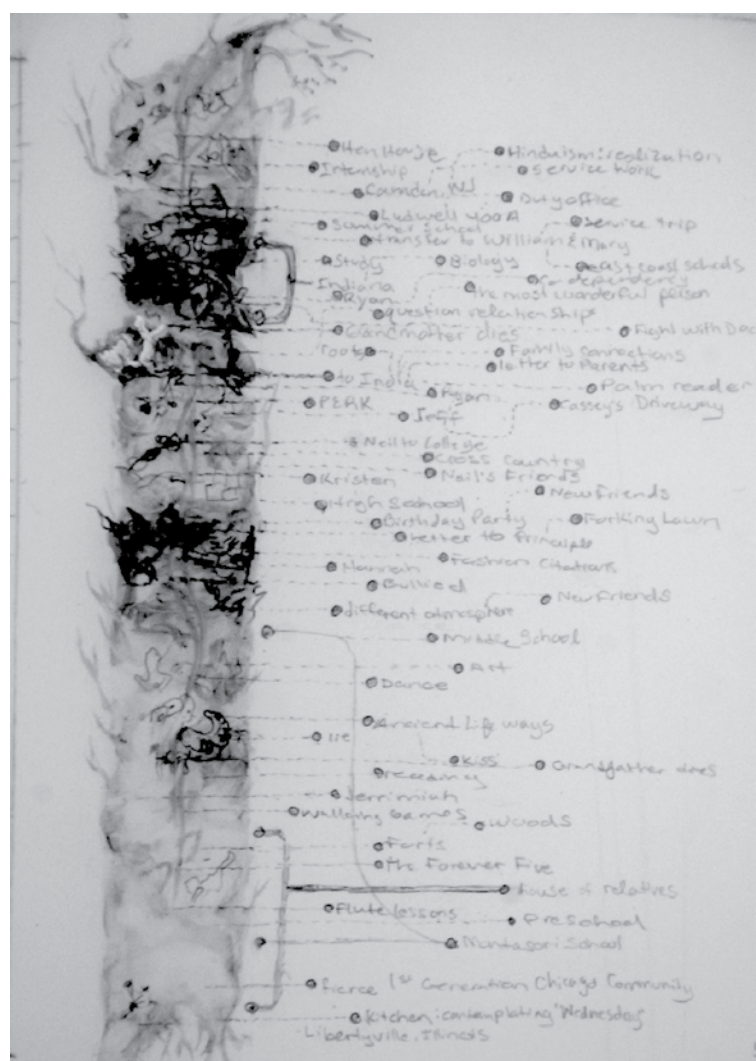 Hen House
Hinduism: realization
Internship
Service work
Camden, NJ
Duty office
Ludwell 400A
Summer School
Service trip
transfer to William & Mary
Study
Biology
east coast scheds
Co-dependency
Indiana
the most wonderful person
Ryan
question relationships
Grandmother dies
Fight with Dad
roots
Family connections
letter to Parents
to India
Palm reader
Ryan
PERK
Cassey's Driveway
Jeff
Neil to College
Cross Country
Neil's Friends
Kristen
New Friends
High School
Birthday Party
Forking Lawn
Letter to Principle
Fashion Citations
Hannah
Bullied
New Friends
different atmosphere
Middle School
Art
Dance
Ancient Lifeways
lie
Kiss
Grandfather dies
Jerrimiah
Walking Games
Woods
Forts
the Forever Five
house of relatives
flute lessons
Preschool
Muntasori School
fierce 1st Generation Chicago Community
Kitchen: contemplating "Wednesday"
Libertyville, Illinois